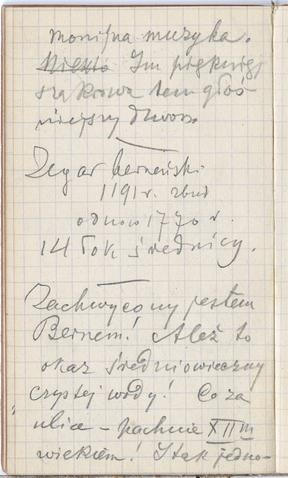 monijna muzyka.
Im piękniej
sza krowa tem głoś-
niejszy dzwon.
Zegar berneński
1191 r. zbud
odnow 1770 r.
14 łok. średnicy.
Zachwycony jestem
Bernem! Ależ to
okaz średniowieczny
czystej wody! Co za
ulice – pachnie XIIm
wiekiem! I tak jedno-